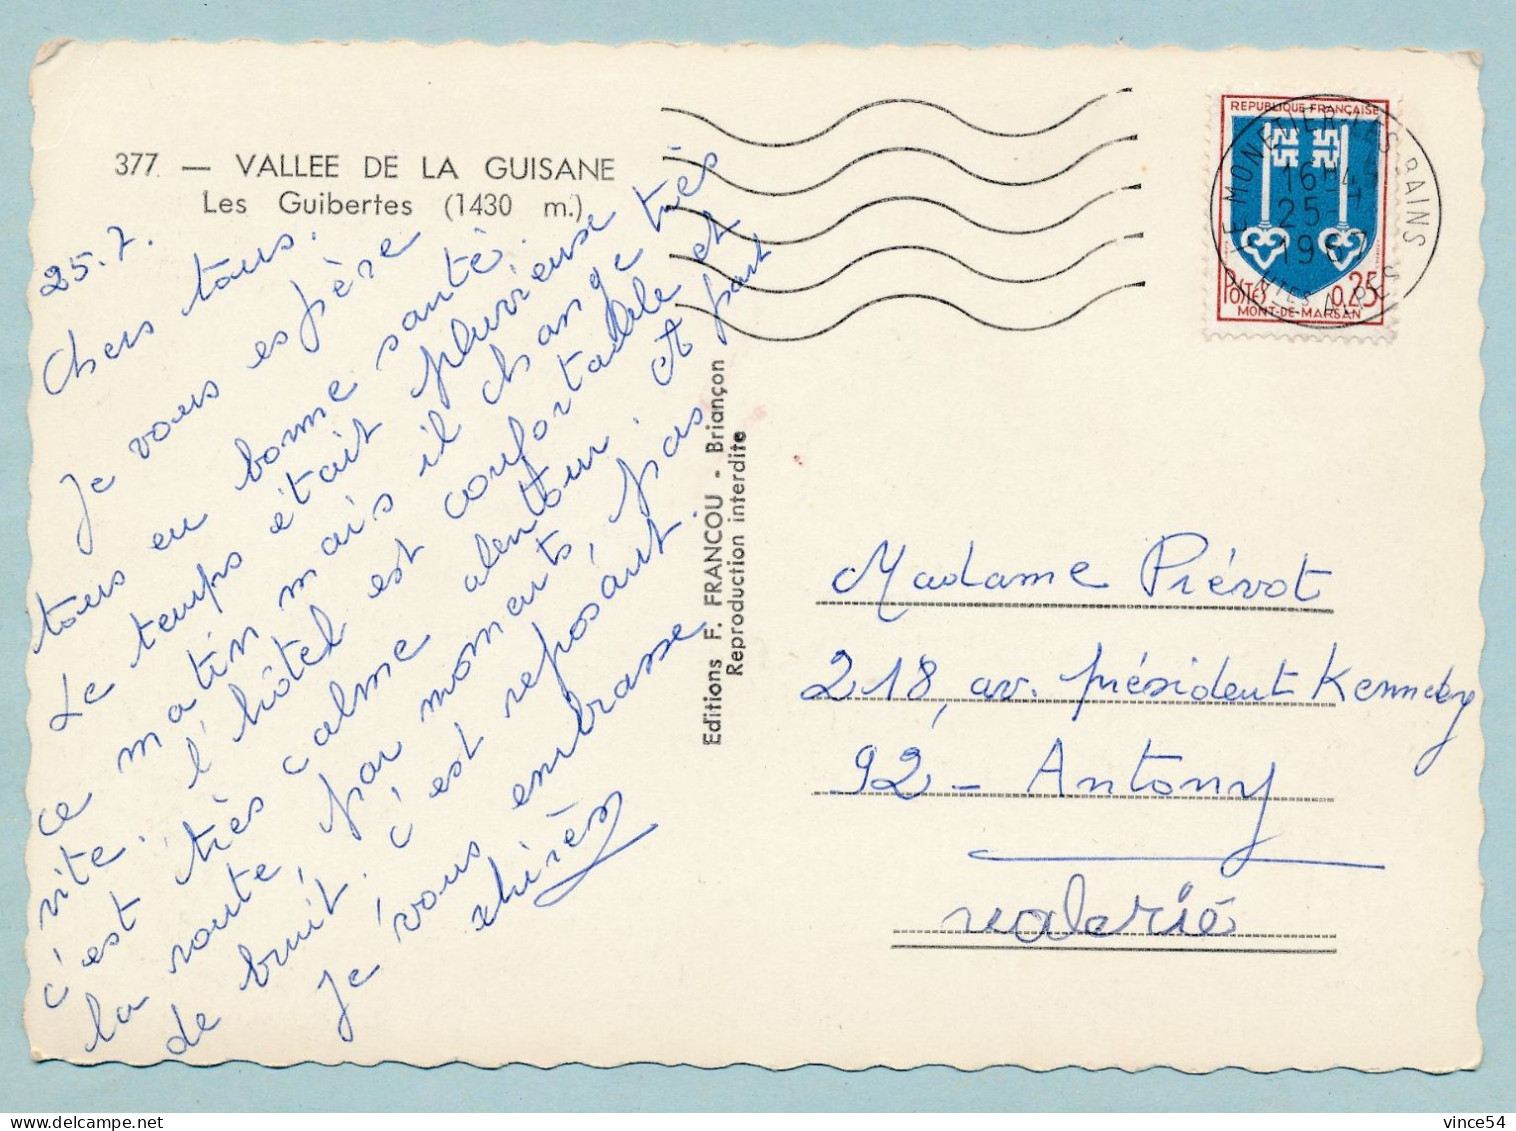 377 — VALLEE DE LA GUISANE
Les Guibertes (1430 m.)
25.7.
Chers tous.
Je vous espère
tous en bonne santé.
Le temps était pluvieuse
ce matin mais il change très
vite. l'hôtel est confortable et
c'est très calme alentour. et part
la route, par moments, pas
de bruit. c'est reposant.
Je vous embrasse
REPUBLIQUE FRANÇAISE
POSTES 0,25
MONT-DE-MARSAN
LE MONETIER-LES-BAINS
16H45
25-7
1967
HTES ALPES
Editions F. FRANCOU - Briançon
Reproduction interdite
Madame Prévot
218, av. président Kennedy
92 - Antony
valerié
vince54